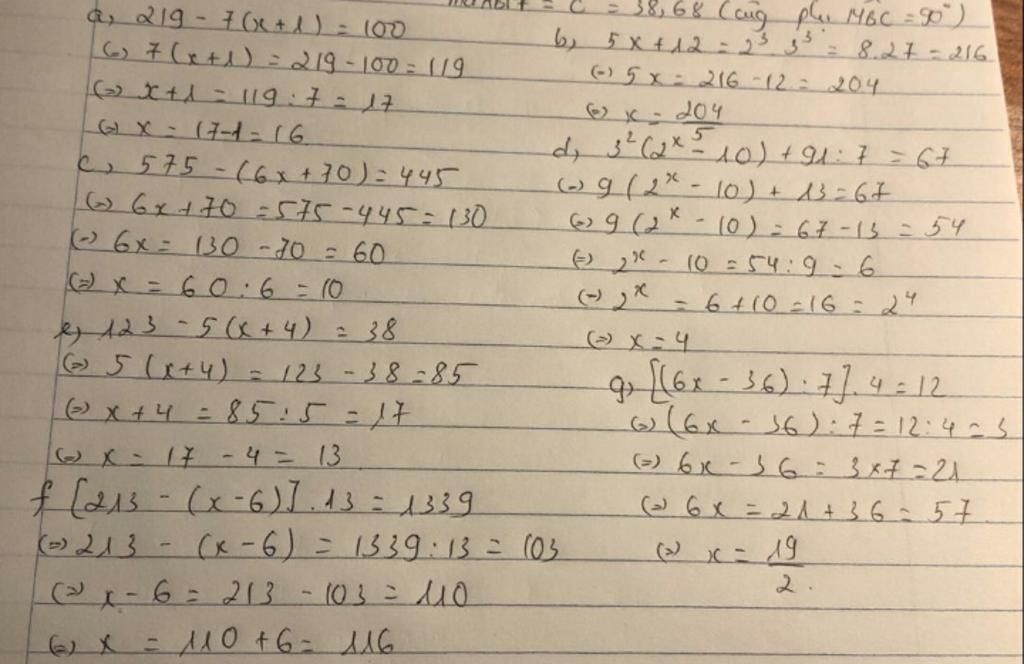 = C = 38,68 (cùng phụ MBC = 90°)
a, 219 - 7(x+1) = 100
(=) 7(x+1) = 219-100 = 119
(=) x+1 = 119 : 7 = 17
(=) x = 17-1 = 16
c, 575 - (6x+70) = 445
(=) 6x+70 = 575-445 = 130
(=) 6x = 130 - 70 = 60
(=) x = 60 : 6 = 10
e, 123 - 5(x+4) = 38
(=) 5(x+4) = 123 - 38 = 85
(=) x+4 = 85 : 5 = 17
(=) x = 17 - 4 = 13
f [213 - (x-6)] . 13 = 1339
(=) 213 - (x-6) = 1339 : 13 = 103
(=) x - 6 = 213 - 103 = 110
(=) x = 110 + 6 = 116
b, 5x + 12 = 2³. 3³ = 8.27 = 216
(=) 5x = 216 - 12 = 204
(=) x = 204/5
d, 3²(2ˣ - 10) + 91 : 7 = 67
(=) 9(2ˣ - 10) + 13 = 67
(=) 9(2ˣ - 10) = 67 - 13 = 54
(=) 2ˣ - 10 = 54 : 9 = 6
(=) 2ˣ = 6+10 = 16 = 2⁴
(=) x = 4
g, [(6x - 36) : 7] . 4 = 12
(=) (6x - 36) : 7 = 12 : 4 = 3
(=) 6x - 36 = 3×7 = 21
(=) 6x = 21 + 36 = 57
(=) x = 19/2.